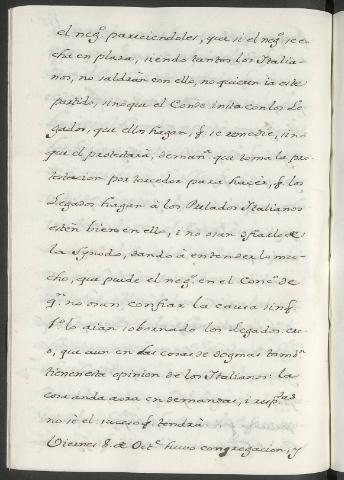 el neg.º pareciendoles, que si el neg.º se e-
cha en plaza, siendo tantos los Italia-
nos, no saldràn con ello, no quieren ia este
partido, sinoque el Conde insta con los Le-
gados, que ellos hagan, q̃. se remedie, sino
que el protestarà, deman.ª que toma la pro-
testacion por torcedor para hacèr, q̃. los
Legados hagan à los Prelados Italianos
estèn bien en ello, i no osan fiarlo de
la Synodo, dando à entender lo mu-
cho, que puede el neg.º en el Conc.º de
q.ⁿ no osan confiar la causa sin q̃.
1.º lo aian sobornado los Legados: cre-
o, que aun en las cosas de dogmas tamb.ⁿ
tienen esta opinion de los Italianos: la
cosa anda aora en demandas, i resp.tas
no sè el suceso q̃. tendrà
Viernes 8. de Oct.e huvo congregacion, y